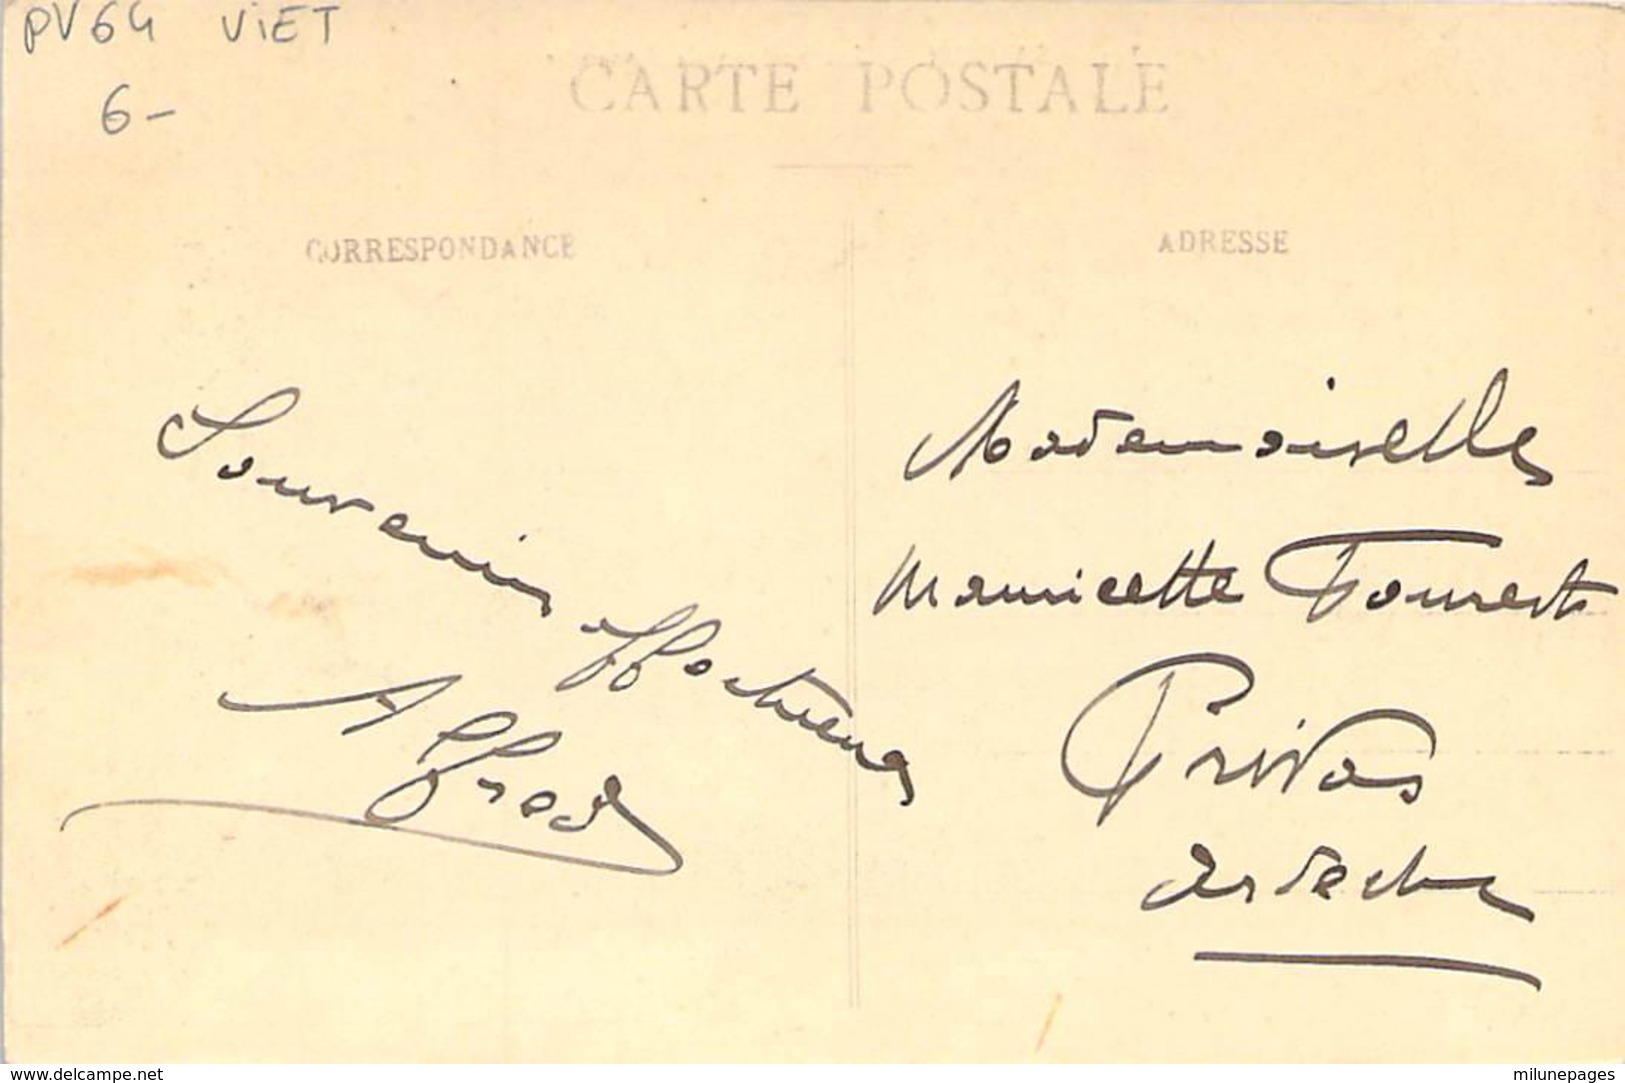 PV64 VIET
6-
CARTE POSTALE
CORRESPONDANCE
ADRESSE
Souvenirs
Affectueux
Alfred
Mademoiselle
Mauricette Fourest
Privas
Ardèche
www.delcampe.net
milunepages